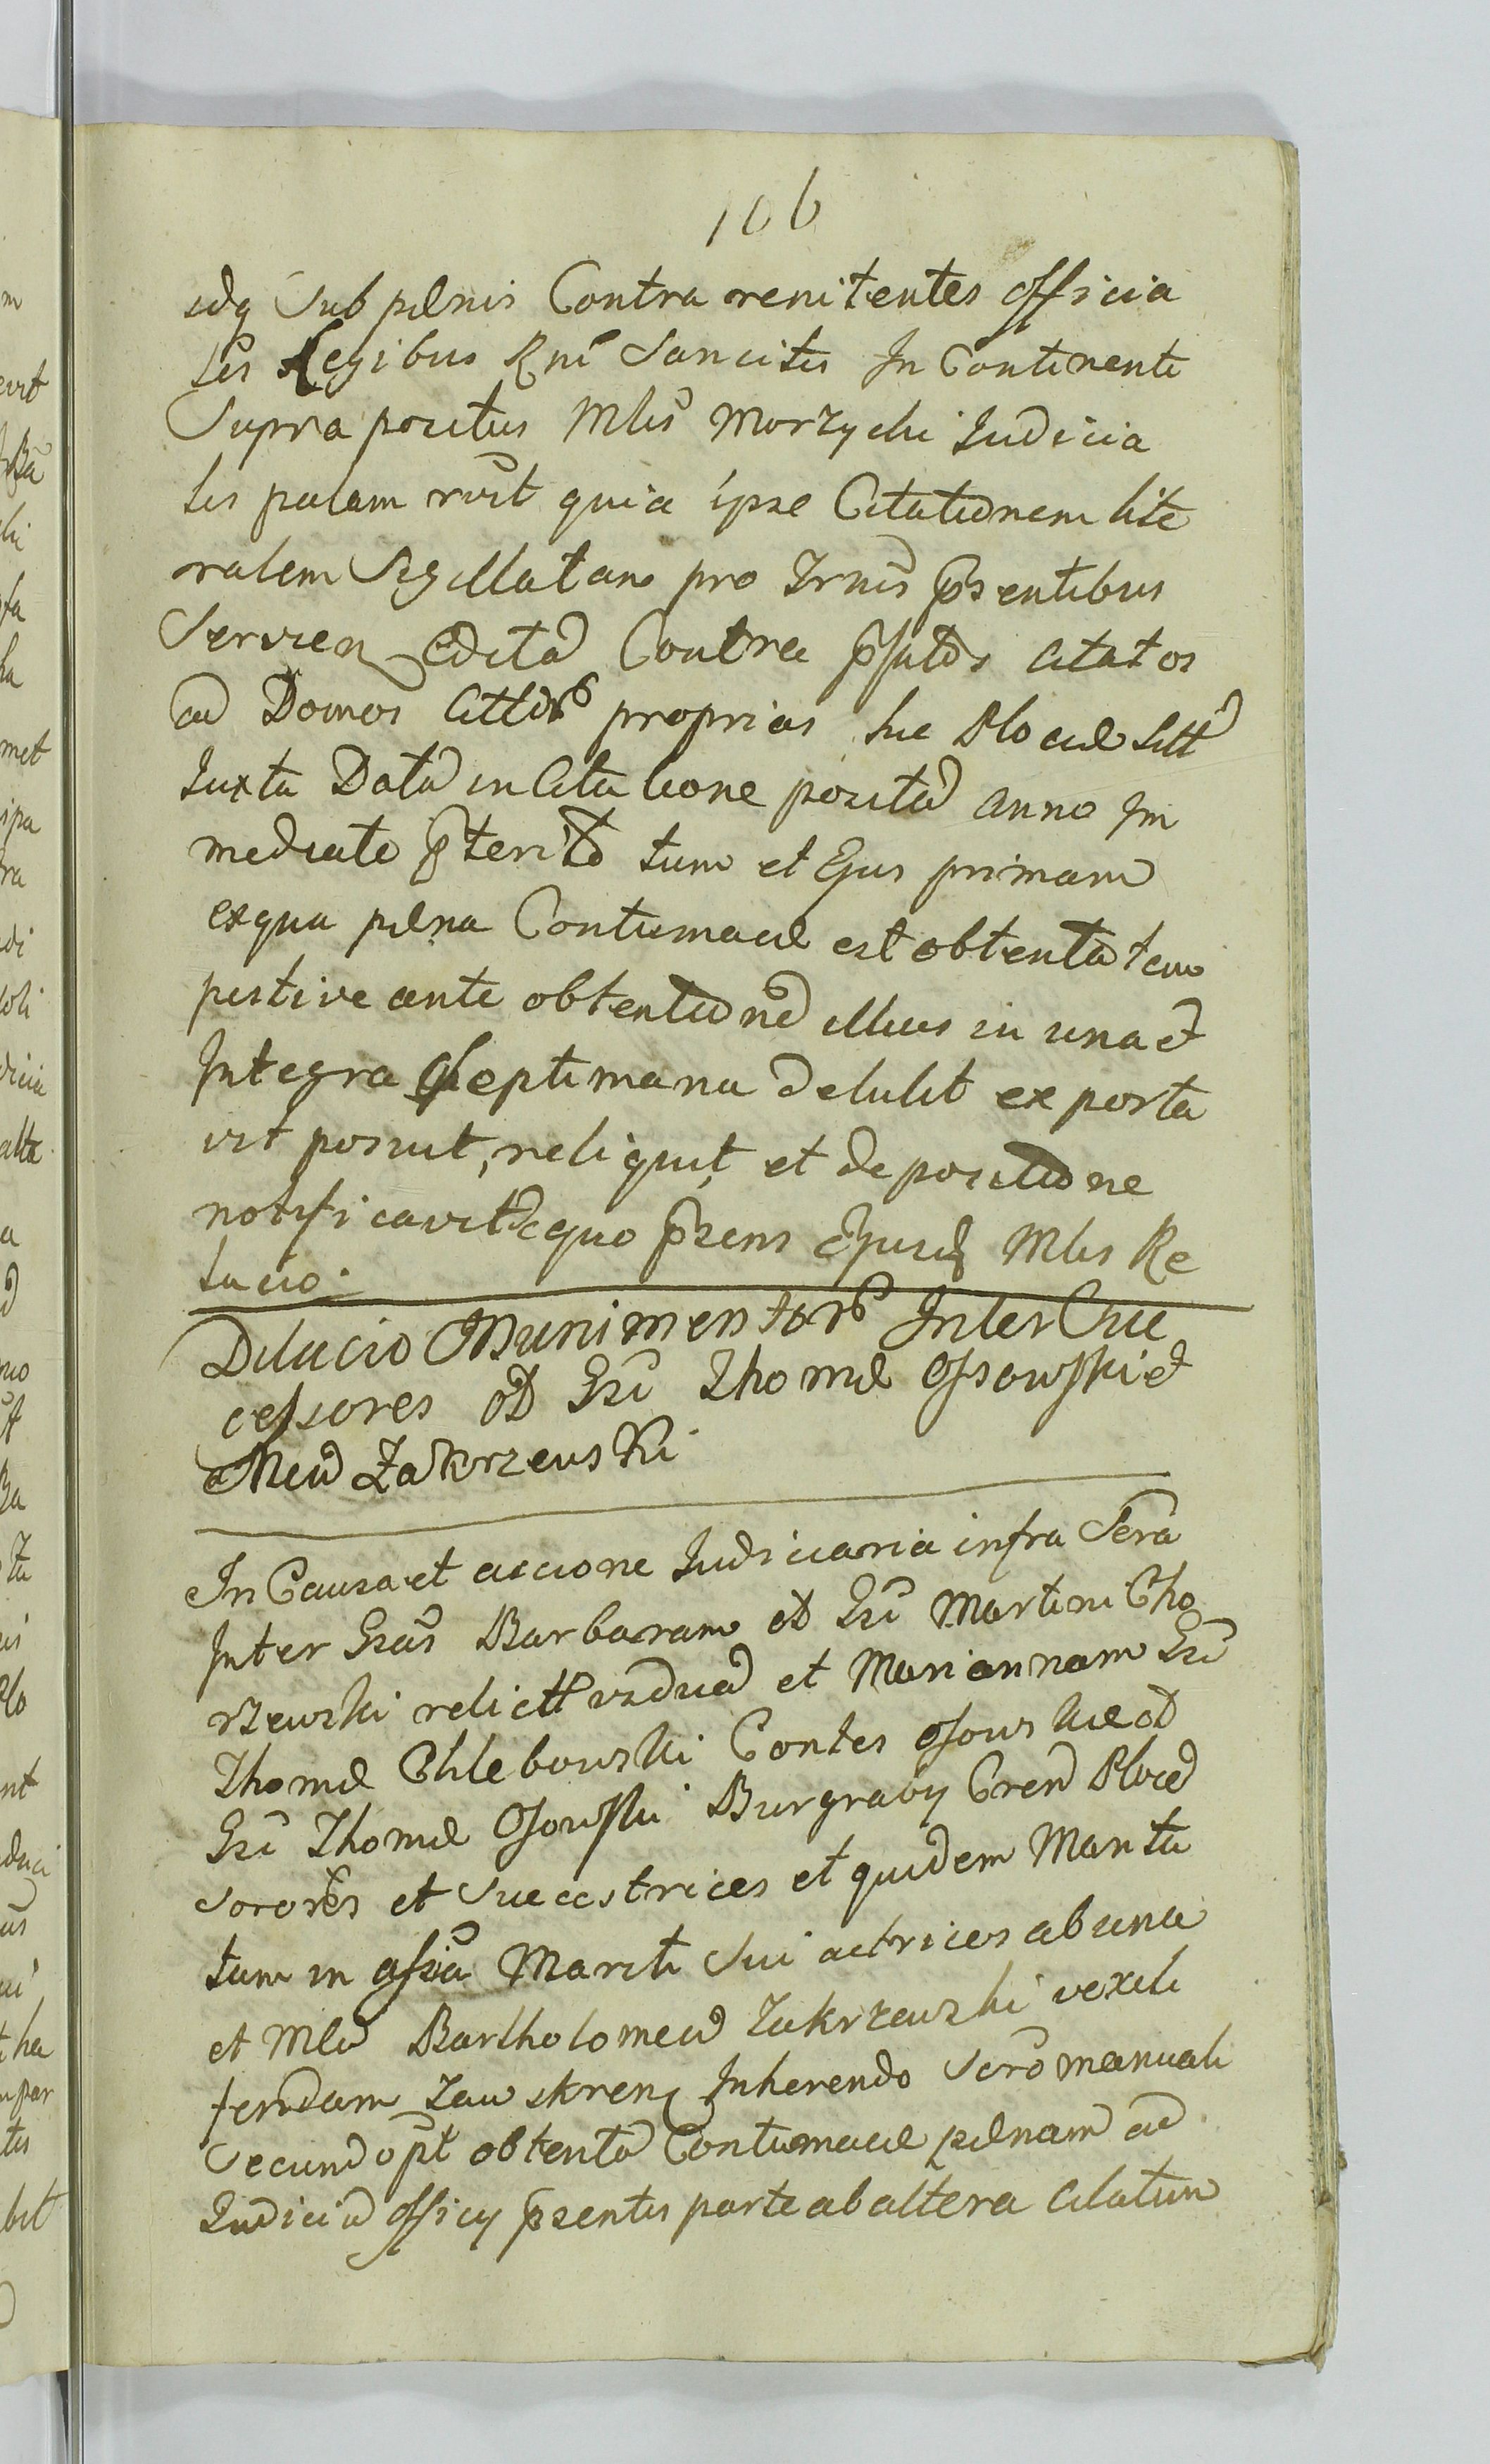 106
idq Sub pænis Contra renitentes officia
les Legibus Rni Sancitis In Continenti
Supra positus Mlis Morzycki Judicia
lis palam rvit quia ipse Citationem lite
ralem Sigillatam pro Trnis p̃sentibus
Servien Editã Contra p̃fatos Citatos
ad Domos Cittorũ proprias hic Plociæ sitt
Juxta Datã in Citatione positã anno Im
mediate p̃terito tum et Ejus primam
ex qua pæna Contumaciæ est obtenta tem
pestive ante obtentionẽ illius in una et
Integra Septimana detulit exporta
vit posuit, reliquit et de positione
notificavit de quo p̃sens Ejusd Mlis Re
lacio.
Dilacio Munimentorũ Inter Suc
cessores od Gsi Thomæ Ossowski et
Mcũ Zakrzewski
In Causa et accione Judiciaria infra Scra
Inter Gsas Barbaram od Gsi Martini Cho
rzewski relictt viduã et Mariannam Gsi
Thomæ Chlebowski Contes Osowskie od
Gsi Thomæ Osowski Burgraby Cren Ploceñ
Sorores et Successtrices et quidem Marita
tam in assia Mariti Sui actrices ab una
et Mcũ Bartholomeũ Zakrzewski vexili
ferũdam Zawskreñ Inherendo Scro manuali
Secundo p̃t obtentã Contumaciæ pænam ad
Judiciũ officy p̃sentis parte ab altera Citatum